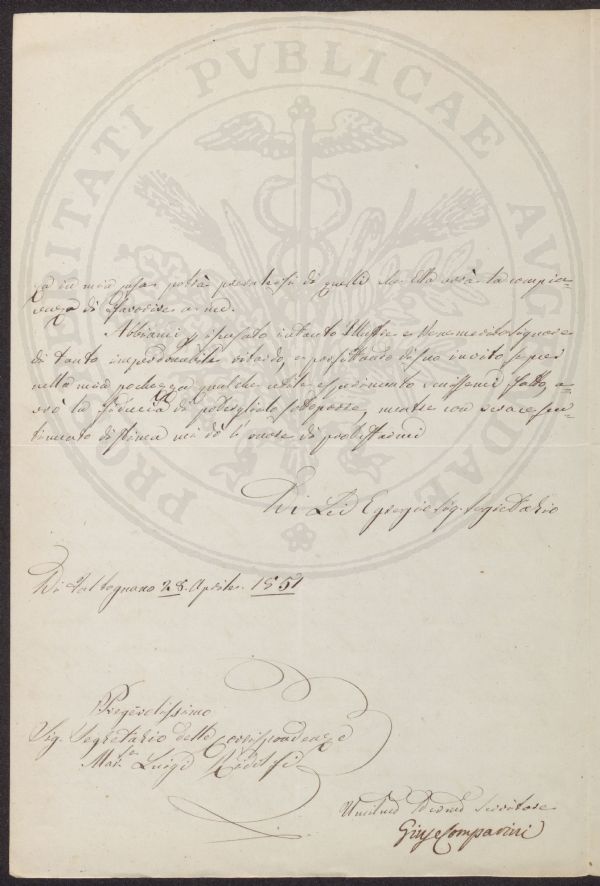 PROSPERITATI PVBLICAE AVGENDAE
za in mia casa potrà presentarsi di quelli che Ella avrà la compia=
cenza di favorire a me.
Abbiami scusato intanto Illustre e Benemerito Signore
di tanto imperdonabile ritardo, e profittando di suo invito se per
nella mia pochezza qualche utile esperimento venissemi fatto, a=
vrò la fiducia di poterglielo sottoporre, mentre con verace sen=
timento di stima mi dò l'onore di protestarmi
Di Lei Egregio Sig. Segretario
Di 28. Aprile 1851
Pregevolissimo
Sig. Segretario delle Corrispondenze
Mar. Luigi Ridolfi
Umilmo Devmo Servitore
Giuse Comparini